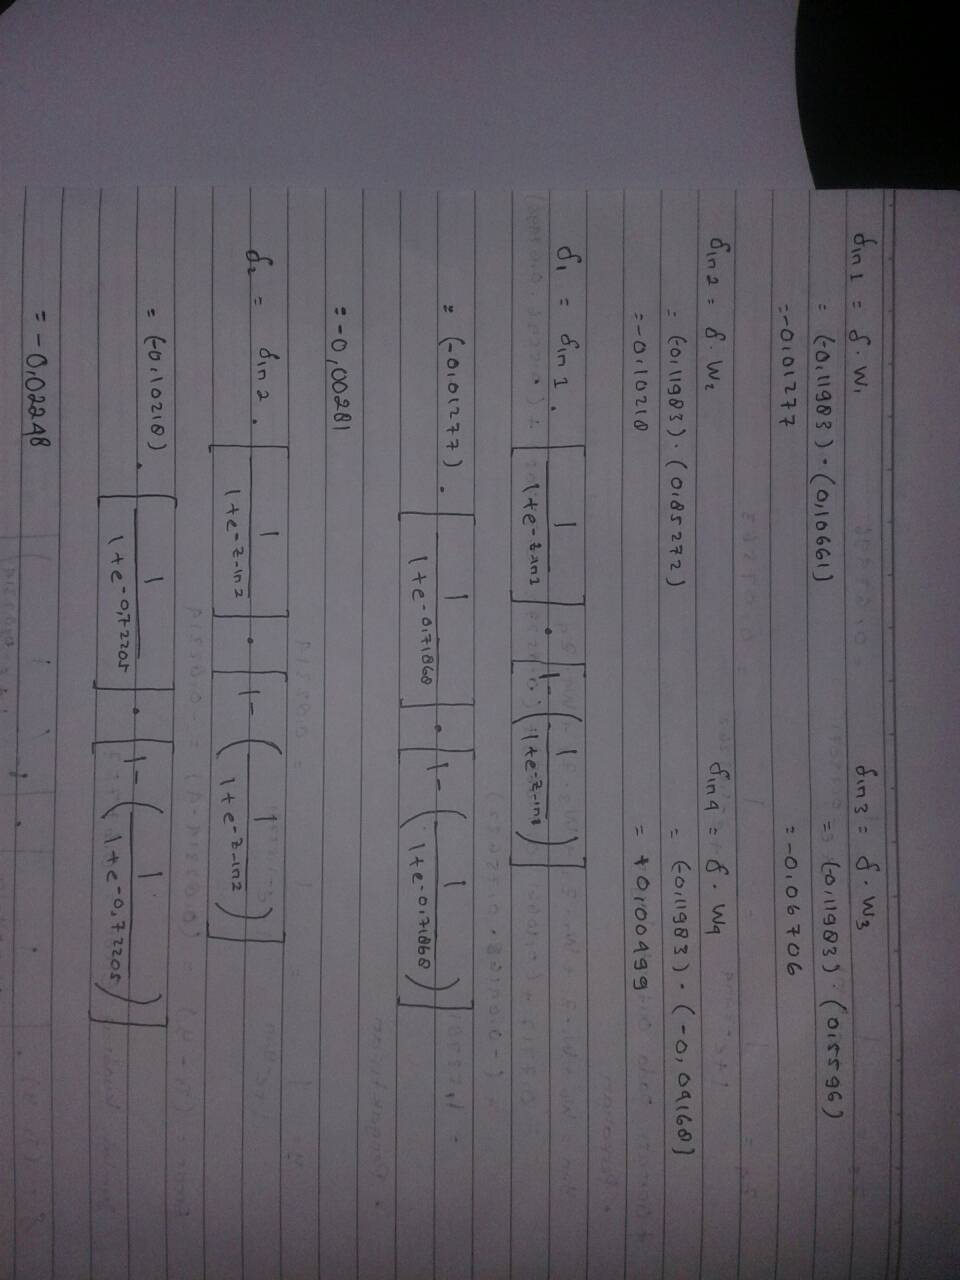 δin1 = δ · W1
= (-0,11983) · (0,10661)
= -0,01277
δin3 = δ · W3
= (-0,11983) · (0,5596)
= -0,06706
δin2 = δ · W2
= (-0,11983) · (0,85272)
= -0,10218
δin4 = δ · W4
= (-0,11983) · (-0,04168)
= +0,00499
δ1 = δin1 · [ 1 / 1+e^-z-in1 ] · [ 1 - ( 1 / 1+e^-z-in1 ) ]
= (-0,01277) · [ 1 / 1+e^-0,71868 ] · [ 1 - ( 1 / 1+e^-0,71868 ) ]
= -0,00281
δ2 = δin2 · [ 1 / 1+e^-z-in2 ] · [ 1 - ( 1 / 1+e^-z-in2 ) ]
= (-0,10218) · [ 1 / 1+e^-0,72205 ] · [ 1 - ( 1 / 1+e^-0,72205 ) ]
= -0,02248